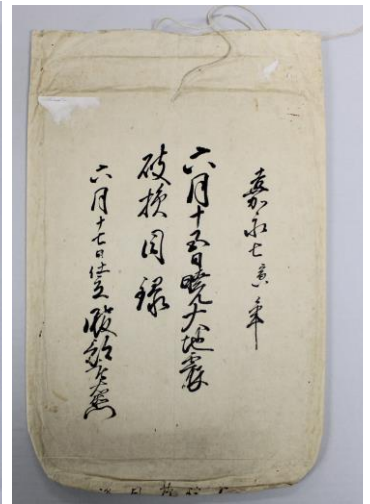 嘉永七寅年
六月十五日暁九大地震
破損目録
六月十七日仕立